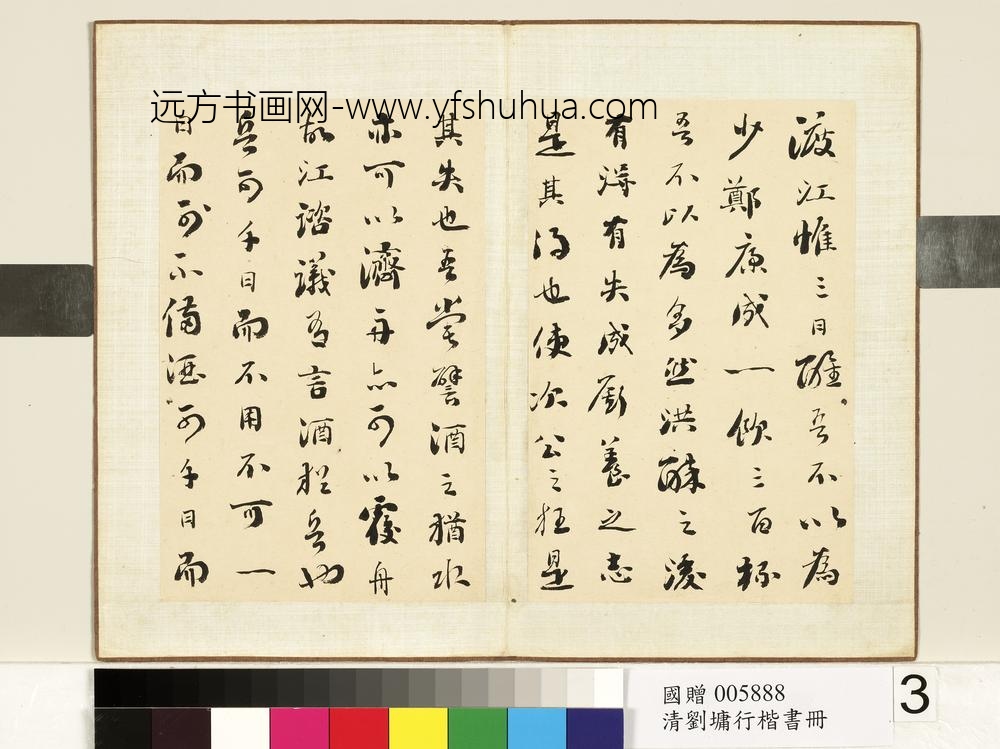 远方书画网-www.yfshuhua.com
渡江惟三日醒吾不以為
少鄭康成一飲三百杯
吾不以為多然洪醉之後
有得有失成廝養之志
是其得也使次公之狂是
其失也吾嘗譬酒之猶水
亦可以濟舟亦可以覆舟
故江諮議有言酒猶兵也
兵可千日而不用不可一
日而不備酒可千日而
國贈 005888
清劉墉行楷書冊
3